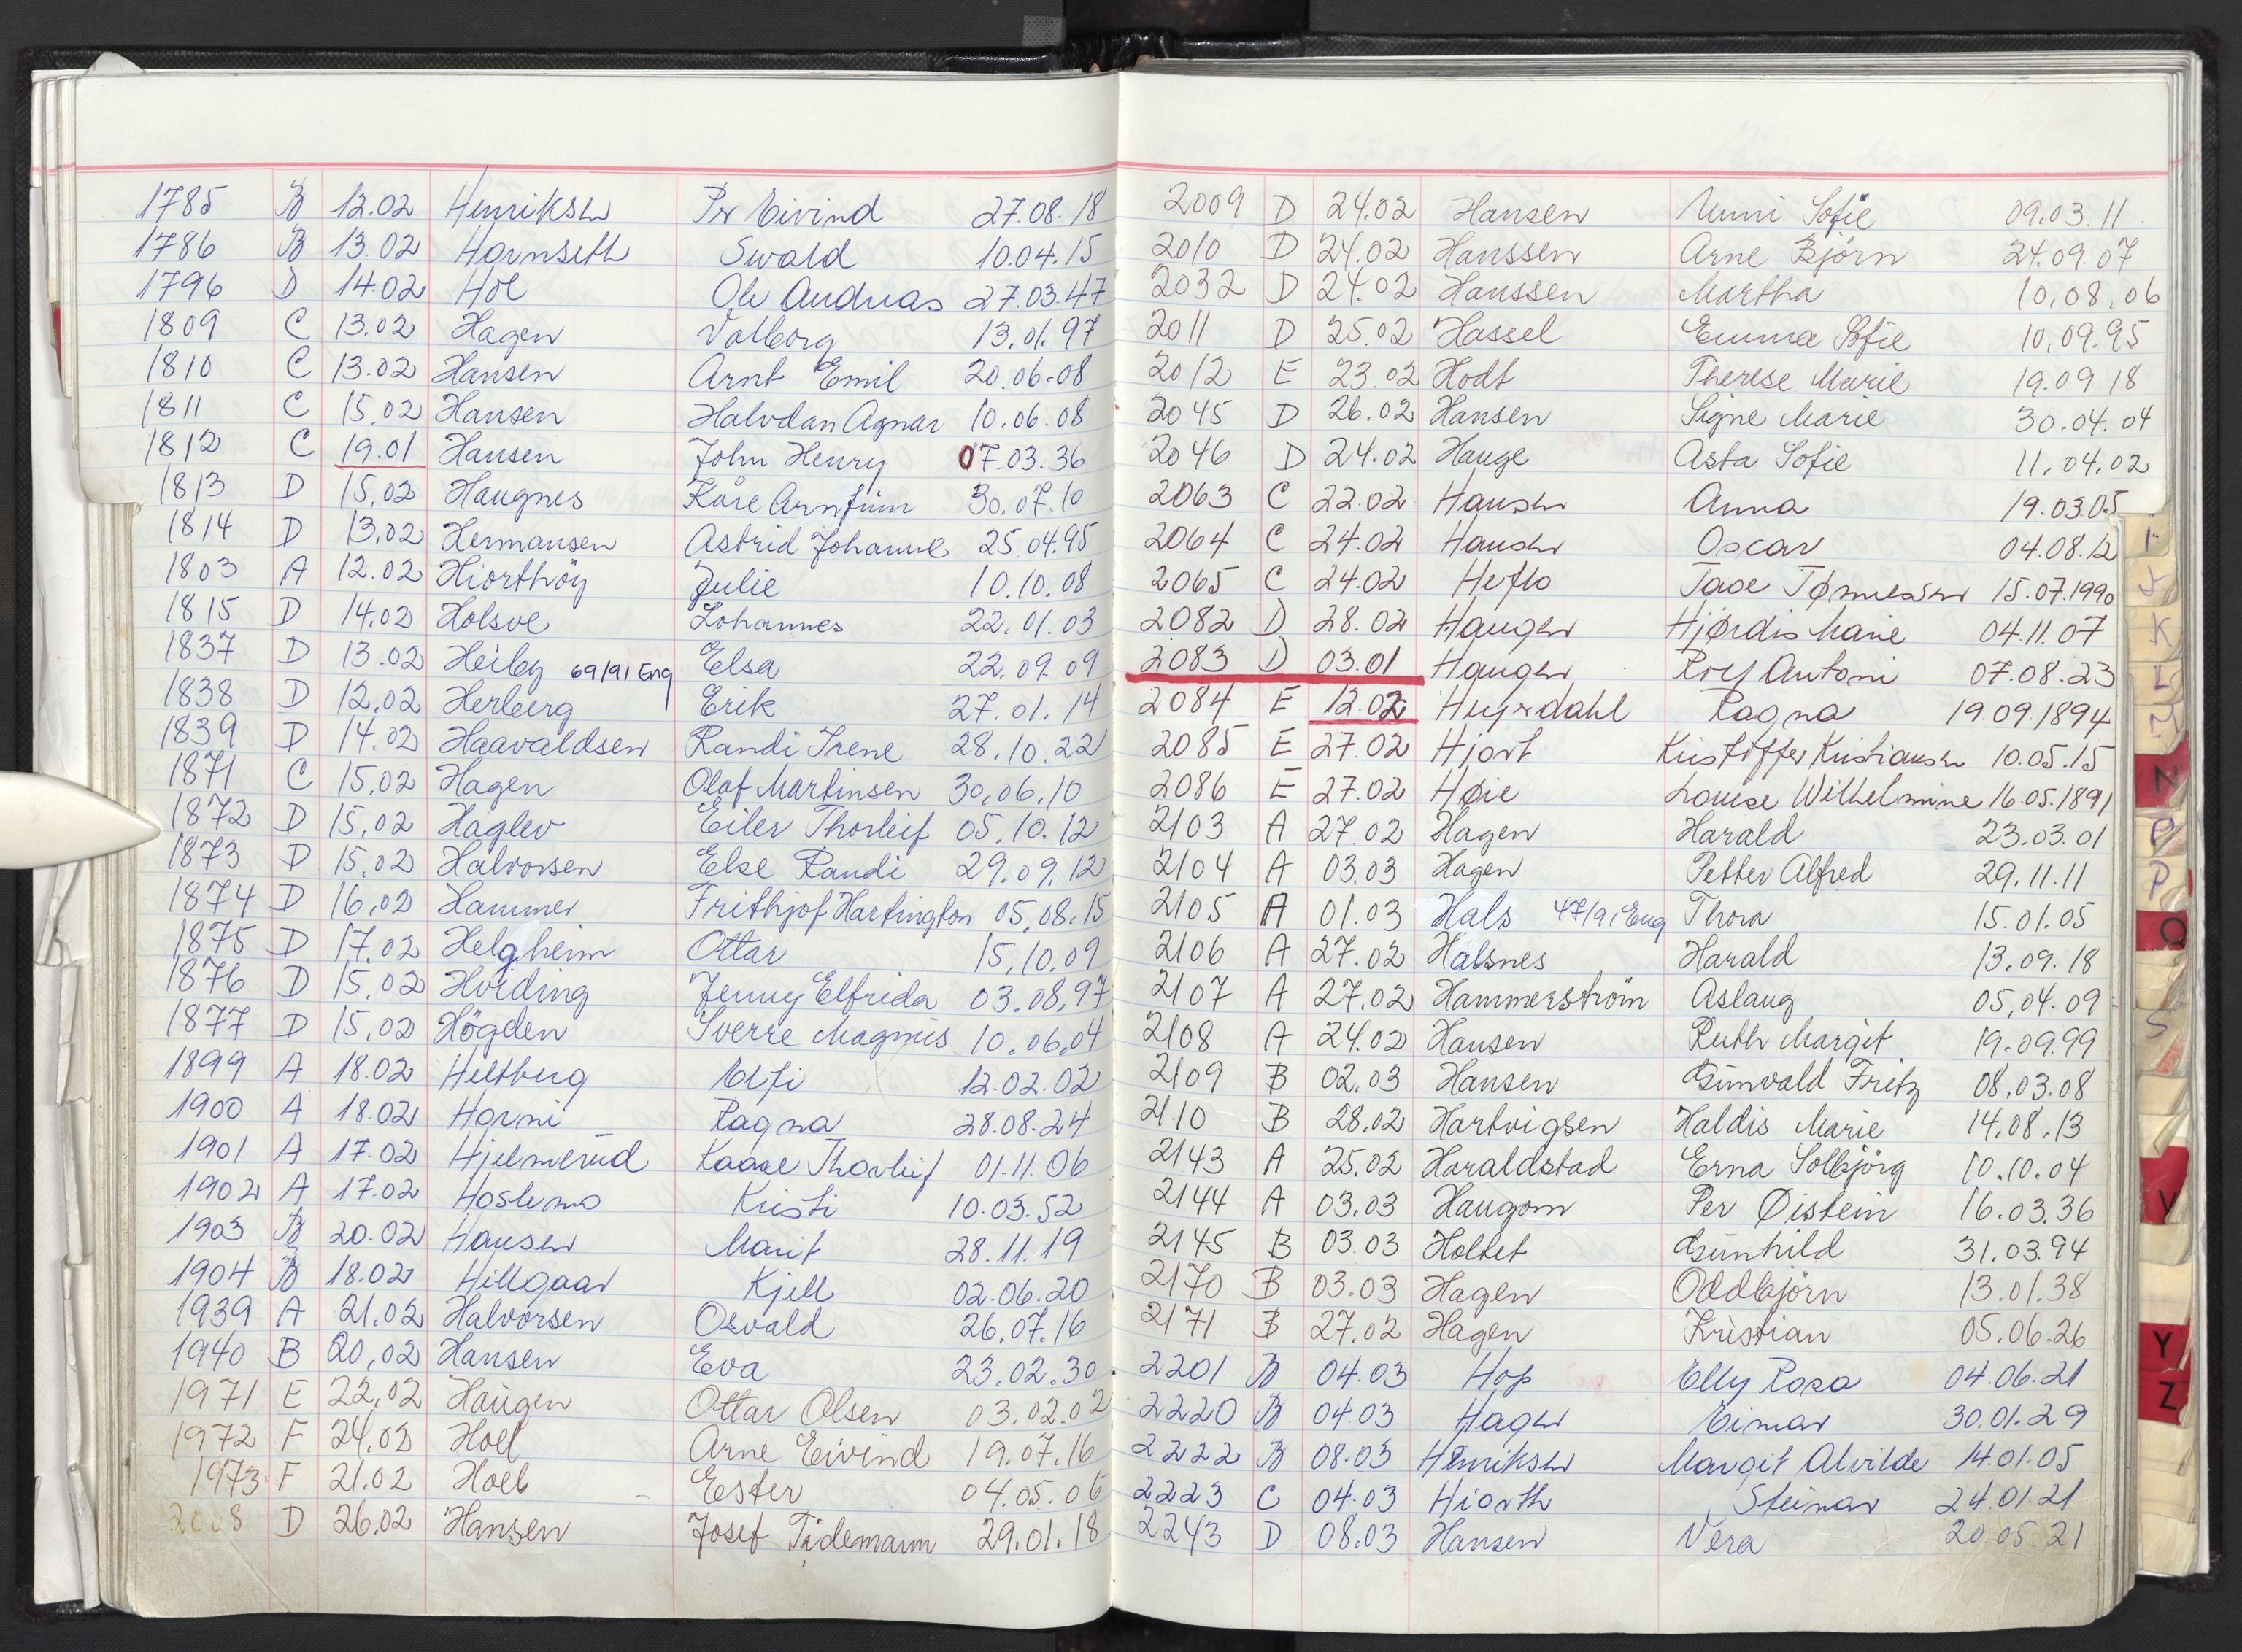 1785 B 12.02 Henriksen Per Eivind 27.08.18
1786 B 13.02 Hornseth Swald 10.04.15
1796 D 14.02 Hol Ole Andreas 27.03.47
1809 C 13.02 Hagen Valborg 13.01.97
1810 C 13.02 Hansen Arnt Emil 20.06.08
1811 C 15.02 Hansen Halvdan Agnar 10.06.08
1812 C 19.01 Hansen John Henry 07.03.36
1813 D 15.02 Haugnes Kåre Arnfinn 30.07.10
1814 D 13.02 Hermansen Astrid Johanne 25.04.95
1803 A 12.02 Hiorthöy Julie 10.10.08
1815 D 14.02 Holsve Johannes 22.01.03
1837 D 13.02 Heiby 69/91 Eng Elsa 22.09.09
1838 D 12.02 Herberg Erik 27.01.14
1839 D 14.02 Haavaldsen Randi Irene 28.10.22
1871 C 15.02 Hagen Olaf Martinsen 30.06.10
1872 D 15.02 Haglev Eiler Thorleif 05.10.12
1873 D 15.02 Halvorsen Else Randi 29.09.12
1874 D 16.02 Hammer Frithjof Hartington 05.08.15
1875 D 17.02 Helgheim Ottar 15.10.09
1876 D 15.02 Hviding Jenny Elfrida 03.08.97
1877 D 15.02 Högden Sverre Magnus 10.06.04
1899 A 18.02 Heltberg 12.02.02
1900 A 18.02 Horni Ragna 28.08.24
1901 A 17.02 Hjelmerud Kaare Thorleif 01.11.06
1902 A 17.02 Hoslemo Kristi 10.03.52
1903 B 20.02 Hansen Marit 28.11.19
1904 B 18.02 Hillgaar Kjell 02.06.20
1939 A 21.02 Halvorsen Osvald 26.07.16
1940 B 20.02 Hansen Eva 23.02.30
1971 E 22.02 Haugen Ottar Olsen 03.02.02
1972 F 24.02 Hoel Arne Eivind 19.07.16
1973 F 21.02 Hoel Ester 04.05.06
2008 D 26.02 Hansen Josef Tidemann 29.01.18
2009 D 24.02 Hansen Unni Sofie 09.03.11
2010 D 24.02 Hanssen Arne Bjórn 24.09.07
2032 D 24.02 Hanssen Martha 10.08.06
2011 D 25.02 Hassel Emma Sofie 10.09.95
2012 E 23.02 Hodt Therese Marie 19.09 18
2045 D 26.02 Hansen Signe Marie 30.04.04
2046 D 24.02 Hauge Asta Sofie 11.04.02
2063 C 22.02 Hansen Anna 19.03.05
2064 C 24.02 Hansen Oscar 04.08.12
2065 C 24.02 Heflo Tade Tønnessen 15.07.1990
2082 D 28.02 Haugen Hjørdis Marie 04.11.07
2083 D 03.01 Haugen Rolf Antoni 07.08.23
2084 E 12.02 Heyerdahl Ragna 19.09.1894
2085 E 27.02 Hjort Kristoffer Kristiansen 10.05.15
2086 E 27.02 Høie Louise Wilhelmine 16.05.1891
2103 A 27.02 Hagen Harald 23.03.01
2104 A 03.03 Hagen Petter Alfred 29.11.11
2105 A 01.03 Hals 47/91 Eng Thora 15.01.05
2106 A 27.02 Halsnes Harald 13.09.18
2107 A 27.02 Hammerström Aslaug 05.04.09
2108 A 24.02 Hansen Ruth Margit 19.09.99
2109 B 02.03 Hansen Gunvald Fritz 08.03.08
2110 B 28.02 Hartvigsen Haldis Marie 14.08.13
2143 A 25.02 Haraldstad Erna Solbjörg 10.10.04
2144 A 03.03 Haugom Per Øistein 16.03.36
2145 B 03.03 Holtet Gunhild 31.03.94
2170 B 03.03 Hagen Oddbjörn 13.01.38
2171 B 27.02 Hagen Kristian 05.06.26
2201 B 04.03 Hop Elly Rosa 04.06.21
2220 B 04.03 Hagen Einar 30.01.29
2222 B 08.03 Henriksen Margit Alvilde 14.01.05
2223 C 04.03 Hiorth Steinar 24.01.21
2243 D 08.03 Hansen Vera 20.05.21
I
J
K
L
M
N
O
P
Q
S
V
Y
Z